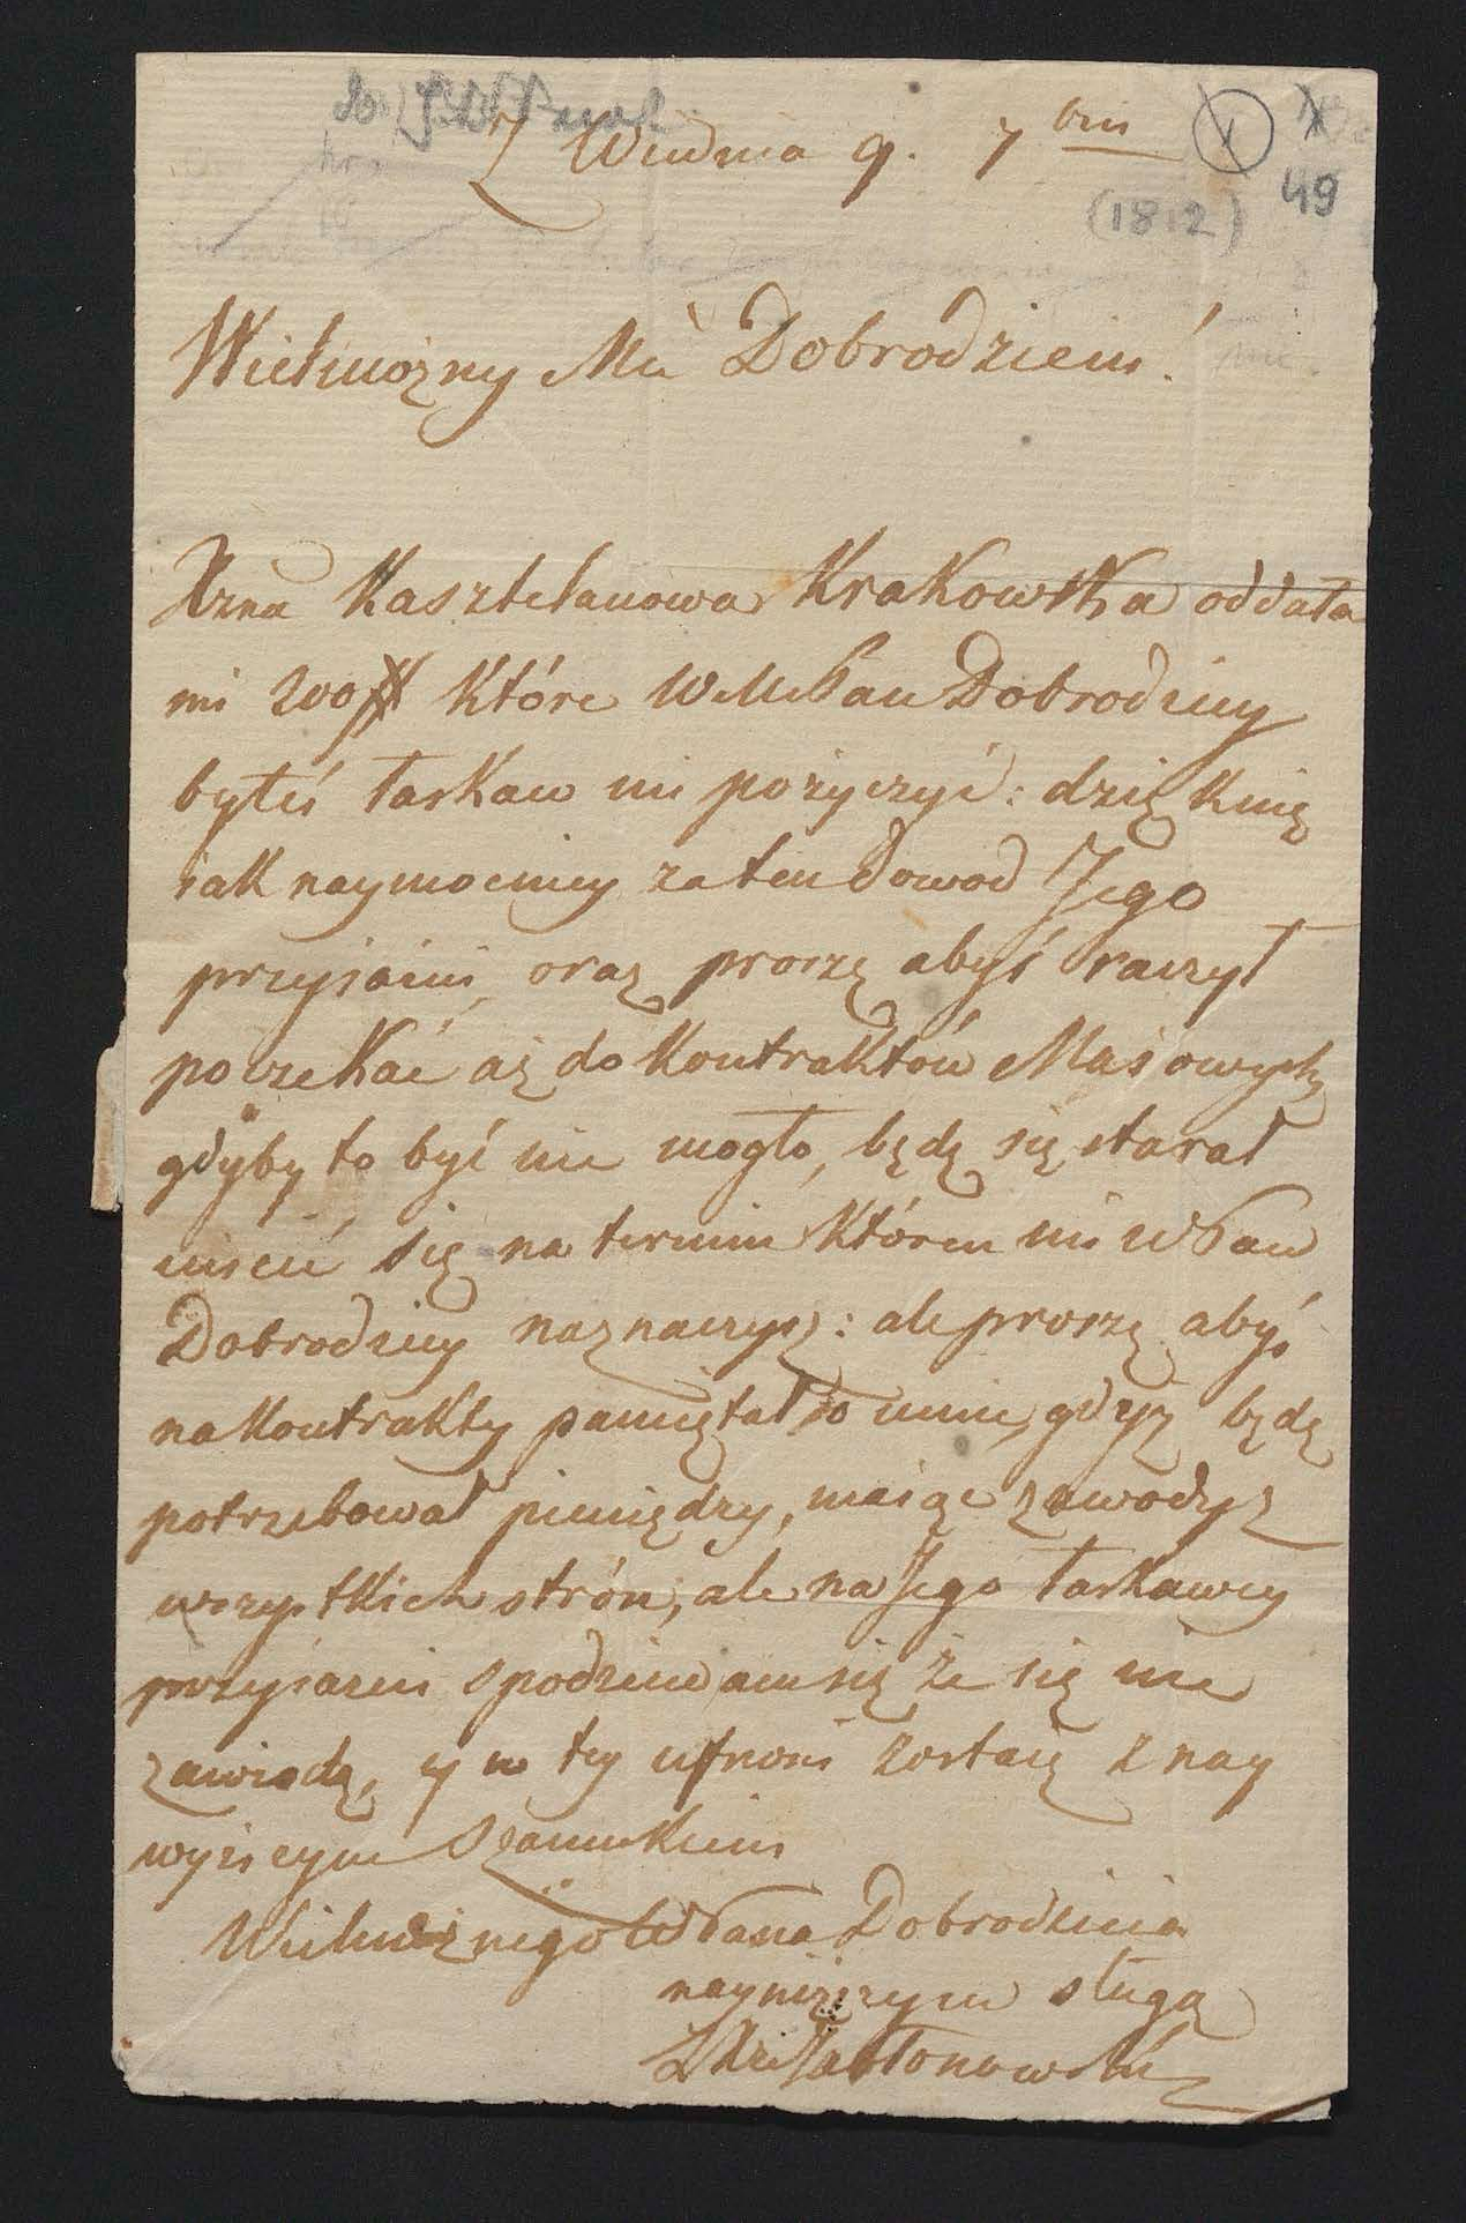 Z Wiednia 9. 7bris
49
(1812)
Wielmożny Mći Dobrodzieiu!
Xzna Kasztelanowa Krakowska oddała
mi 200# które WMPan Dobrodziey
byłeś łaskaw mi pożyczyć: dziękuię
iak naymocniey za ten dowod Jego
przyiaźni, oraz proszę abyś raczył
poczekać aż do Kontraktów Maiowych
gdyby to być nie mogło, będę się starał
uiścić się na termin któren mi WPan
Dobrodziey naznaczysz: ale proszę abyś
na Kontrakty pamiętał o mnie, gdyż będę
potrzebował pieniędzy, maiąc zawody z
wszystkich strón, ale na Jego łaskawey
przyiazni spodziewam się że się nie
zawiodę, y w tey ufnosci zostaię z nay
wyższym Szacunkiem
Wielmożnego WPana Dobrodzieia
nayniższym sługą
Xże Jabłonowski